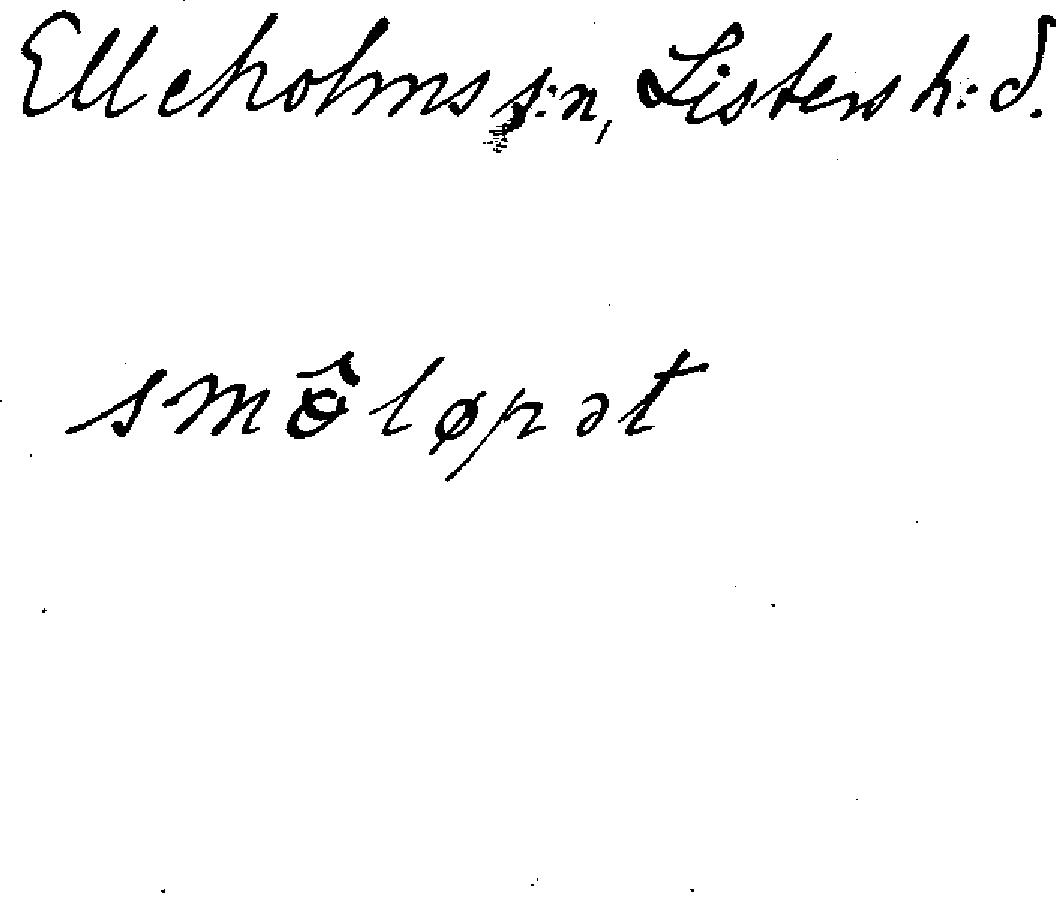 Elleholms s:n, Listers h:d.
smôløpət